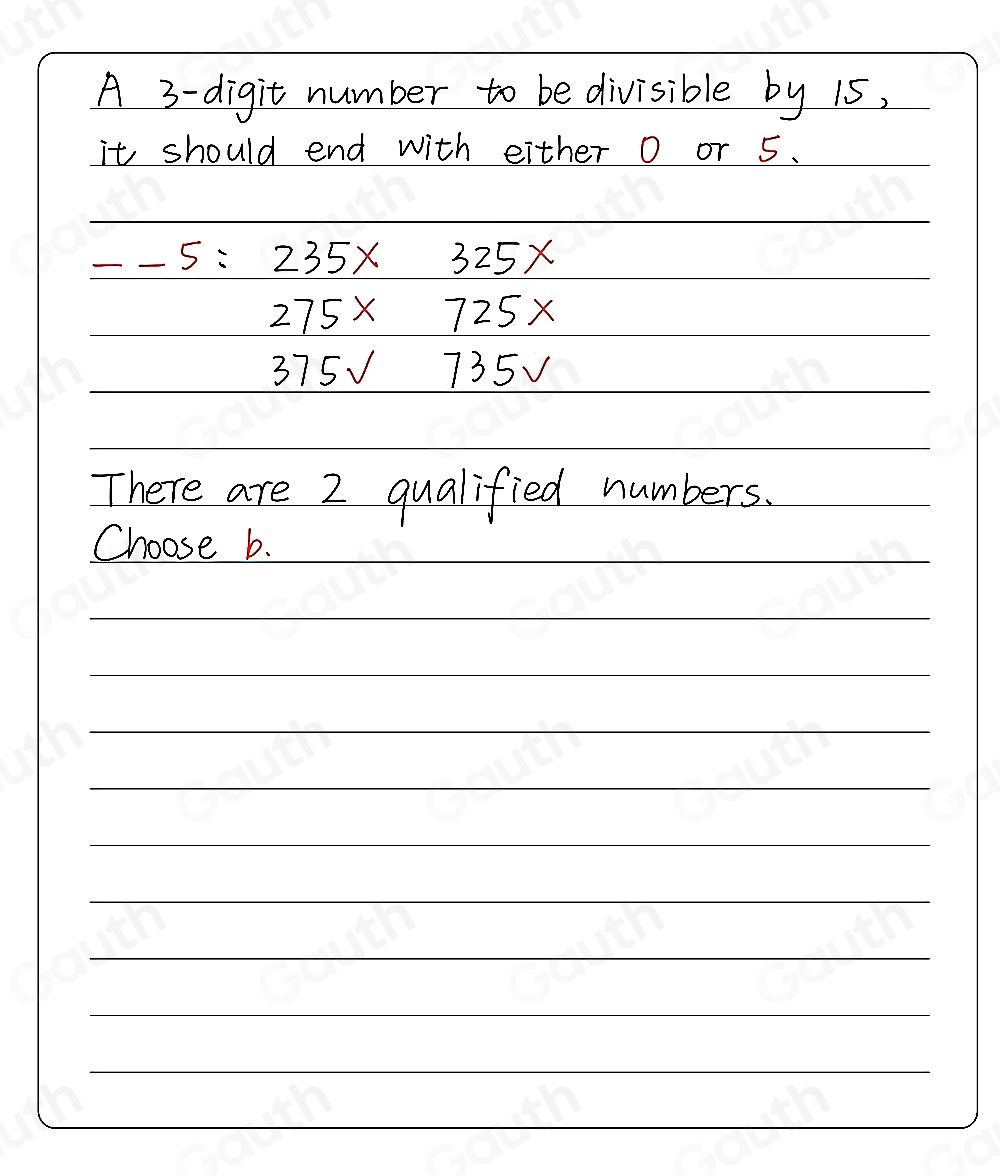 A 3-digit number to be divisible by 15,
it should end with either 0 or 5.
_ _ 5 : 235× 325×
275× 725×
375✓ 735✓
There are 2 qualified numbers.
Choose b.